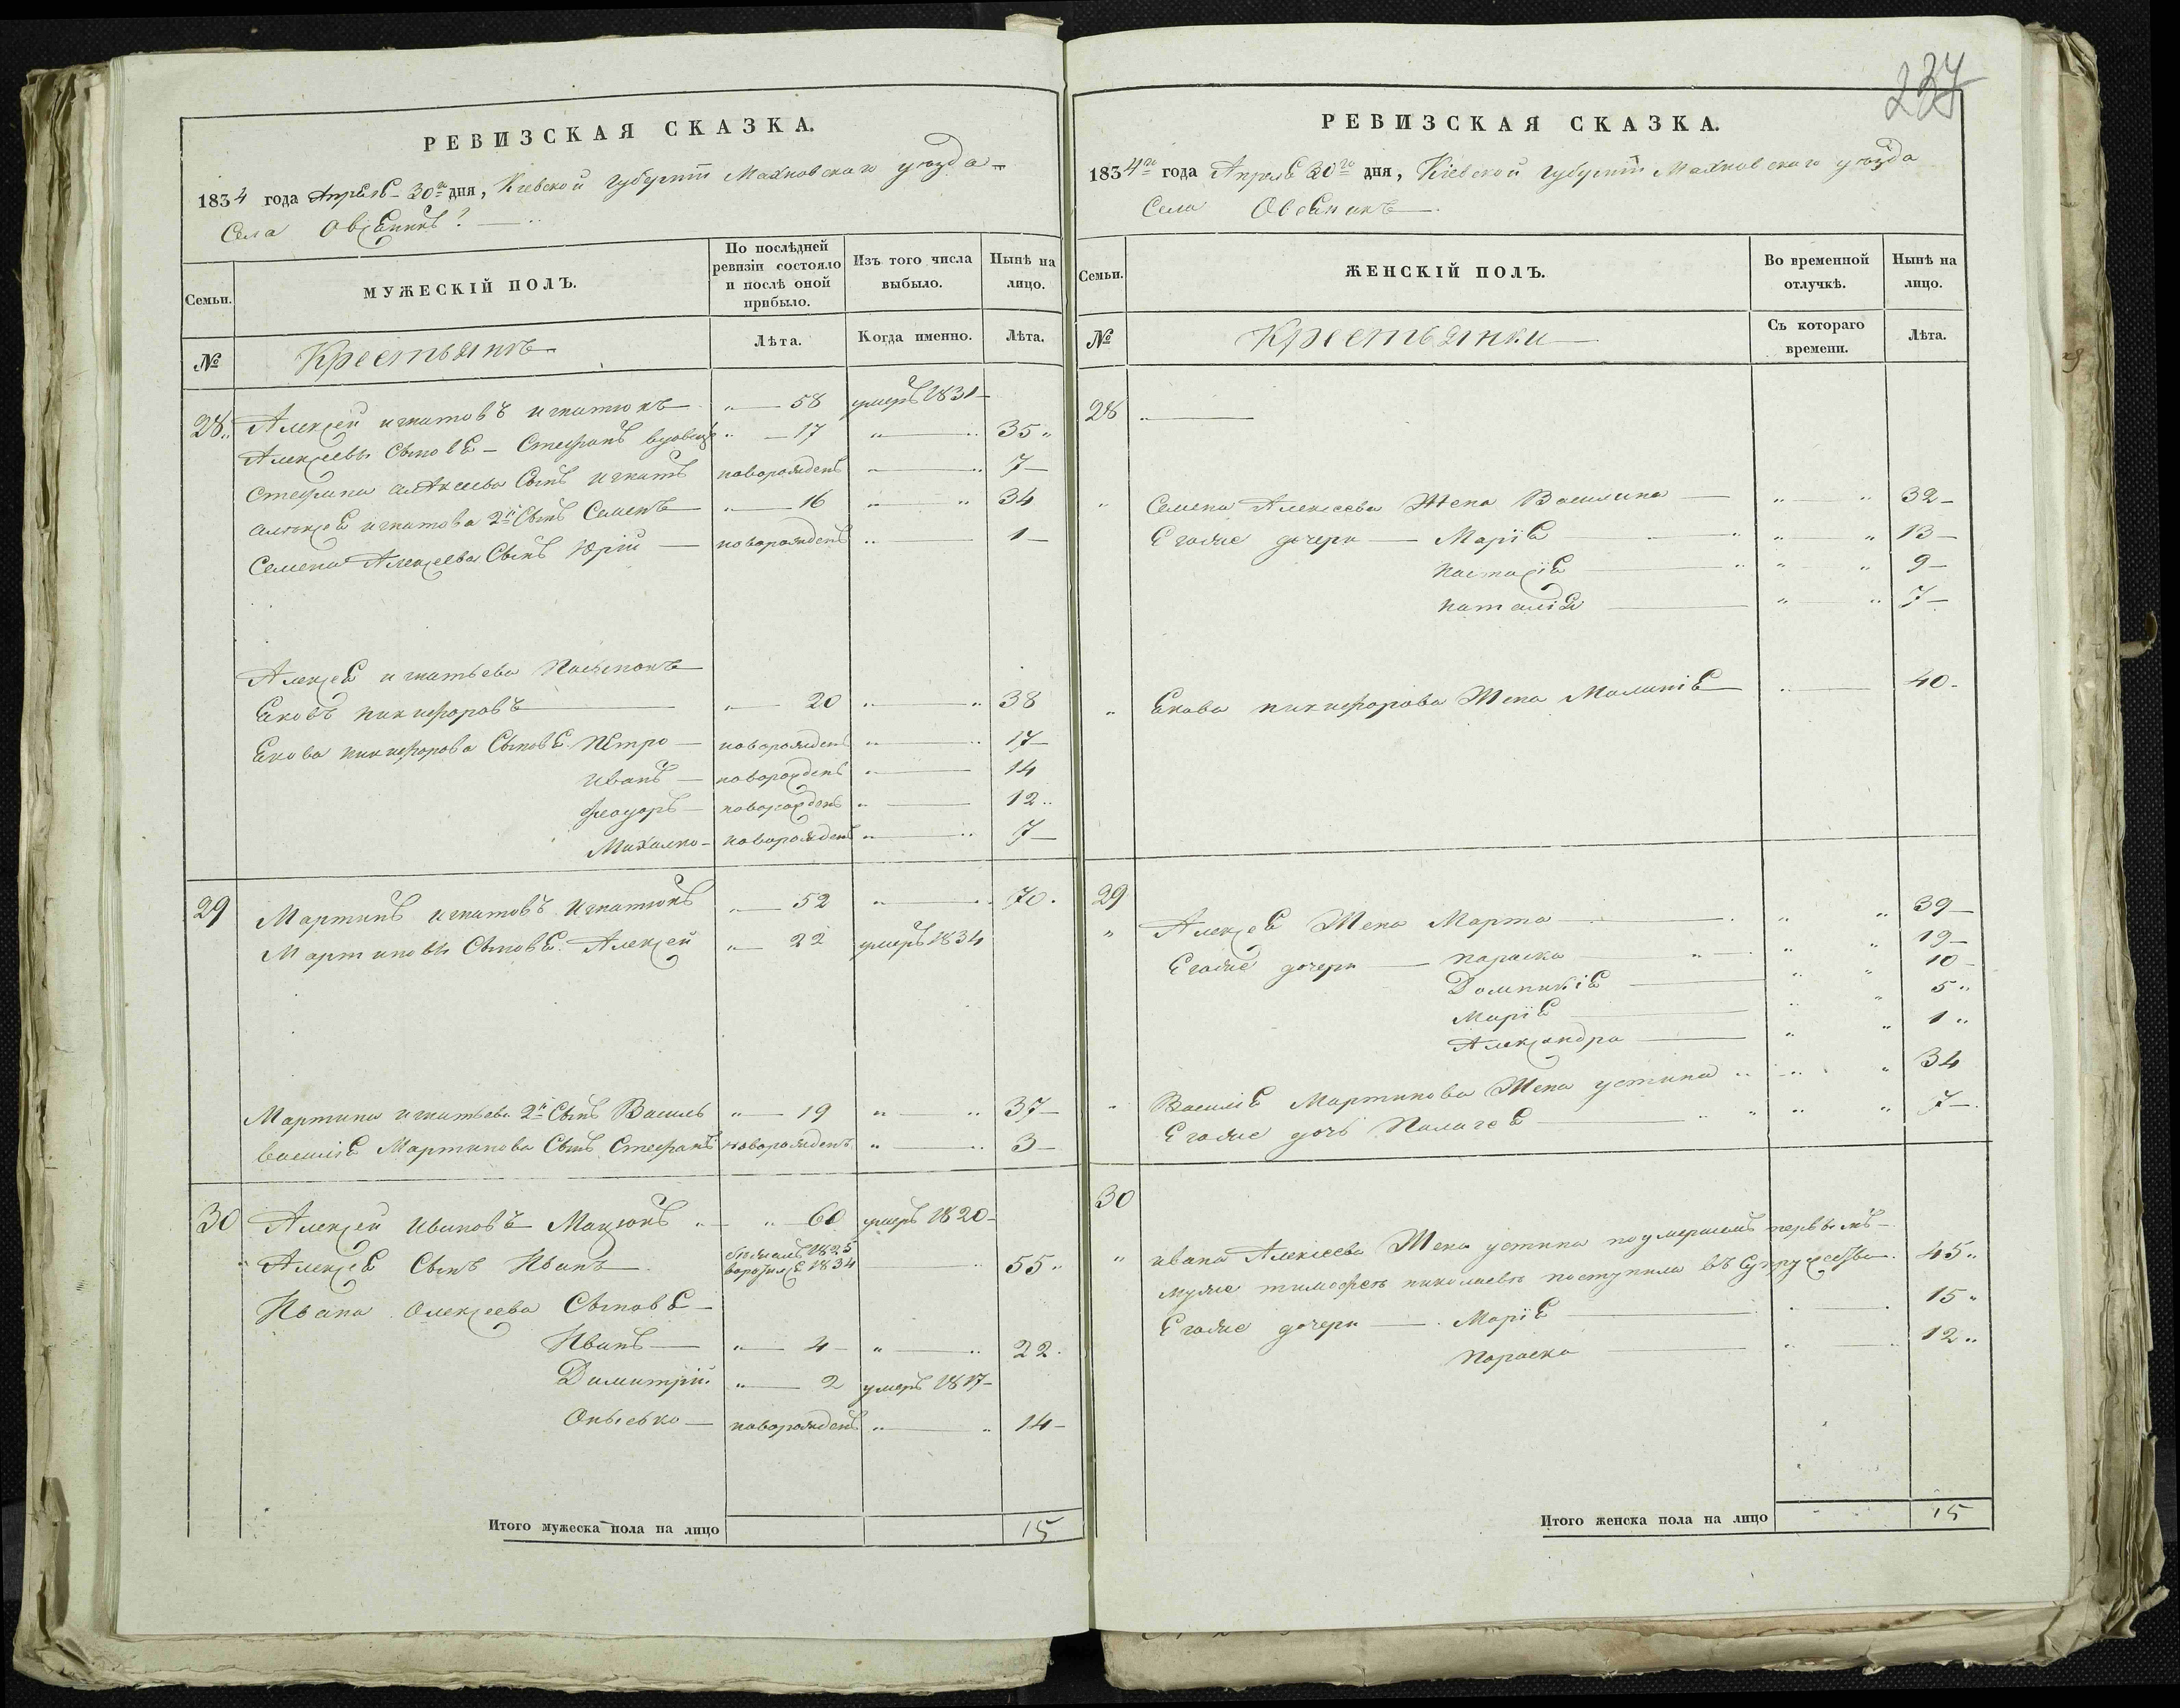 РЕВИЗСКАЯ СКАЗКА.
1834 года Апреля 30го дня, Кіевской губерніи Махновскаго уезда
Села Овсяникъ
Семьи.
МУЖЕСКІЙ ПОЛЪ.
По послѣдней ревизіи состояло и послѣ оной прибыло.
Изъ того числа выбыло.
Нынѣ на лицо.
№
Крестьянъ
Лѣта.
Когда именно.
Лѣта.
28 Алексей игнатовъ игнатюкъ 58 умеръ 1831
Алексеевы Сыновя Стефанъ вдовецъ 17 35
Стефана алексеева Сынъ игнатъ новорожденъ 7
алексея игнатова 2й Сынъ Семенъ 16 34
Семена Алексеева Сынъ Юрій новорожденъ 1
Алексея игнатьева Пасынокъ
Яковъ никифоровъ 20 38
Якова никифорова Сыновя Петро новорожденъ 17
иванъ новорожденъ 14
новорожденъ 12
Михалко новорожденъ 7
29 Мартинъ игнатовъ игнатюкъ 52 70
Мартиновы Сыновя Алексей 22 умеръ 1834
Мартина игнатьева 2й Сынъ Василь 19 37
василія Мартинова Сынъ Стефанъ новорожденъ 3
30 Алексей ивановъ Мацюкъ 60 умеръ 1820
Алексея Сынъ Иванъ 1825 1834 55
Ивана Олексеева Сыновя
Иванъ 4 22
Димитрій 2 умеръ 1817
Онысько новорожденъ 14
Итого мужеска пола на лицо 15
237
РЕВИЗСКАЯ СКАЗКА.
1834го года Апреля 30го дня, Кіевской губерніи Махновскаго уезда
Села Овсяникъ
Семьи.
ЖЕНСКІЙ ПОЛЪ.
Во временной отлучкѣ.
Нынѣ на лицо.
№
Крестьянки
Съ котораго времени.
Лѣта.
28
Семена Алексеева Жена Василина 32
Егоже дочери Марія 13
настасія 9
наталія 7
Якова никифорова Жена Маланія 40
29
Алексея Жена Марта 39
Егоже дочери параска 19
Домникія 10
Марія 5
Александра 1
Василія Мартинова Жена устина 34
Егоже дочь Палагея 7
30
ивана Алексеева Жена устина по умершемъ первымъ
муже тимофея николаевъ поступила въ Супружество 45
Егоже дочери Марія 15
параска 12
Итого женска пола на лицо 15